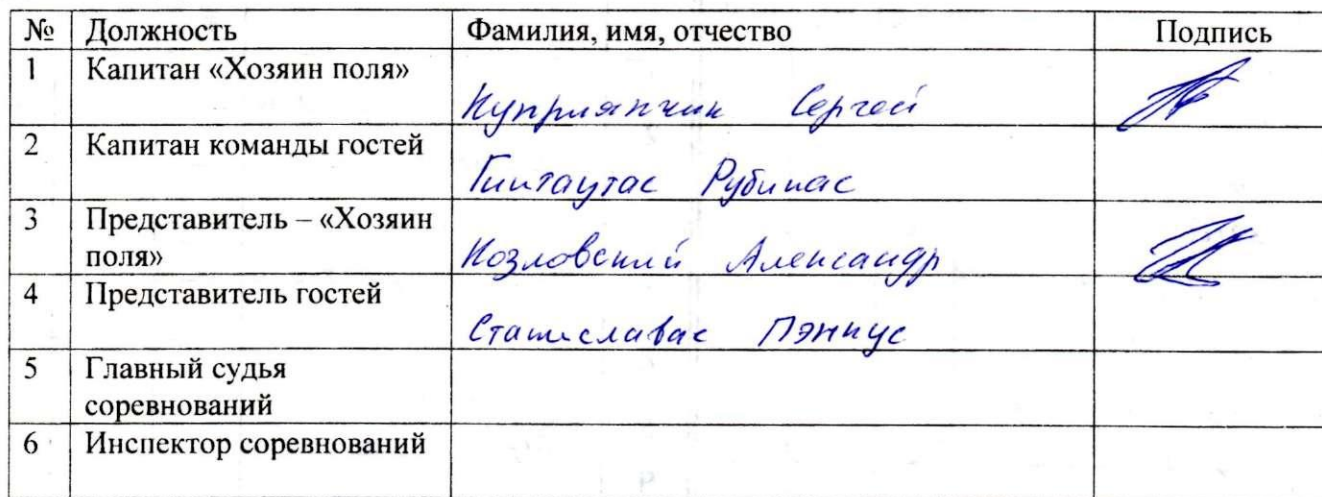 № Должность Фамилия, имя, отчество Подпись
1 Капитан «Хозяин поля»
Куприянчик Сергей
2 Капитан команды гостей
Гинтаутас Рубинас
3 Представитель – «Хозяин
поля» Козловский Александр
4 Представитель гостей
Станиславас Пэнкус
5 Главный судья
соревнований
6 Инспектор соревнований